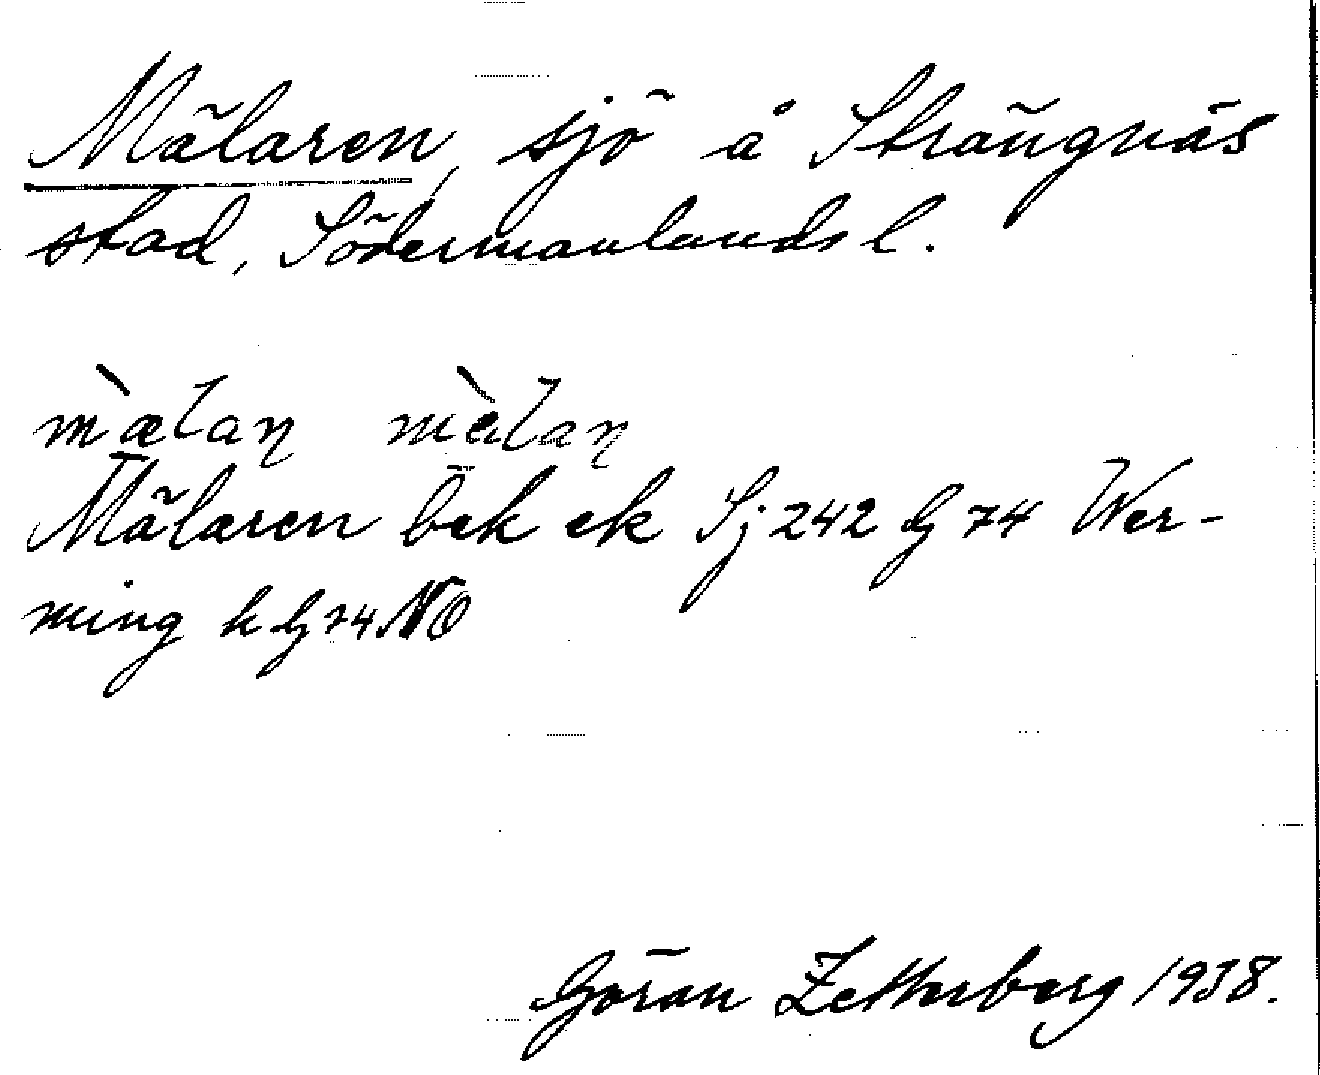 Mälaren, sjö å Strängnäs
stad, Södermanlands l.
mæ̀lan mèlan
Mälaren bek ek Sj 242 G 74 Wer-
ming k G 74 NO
Göran Zetterberg 1938.